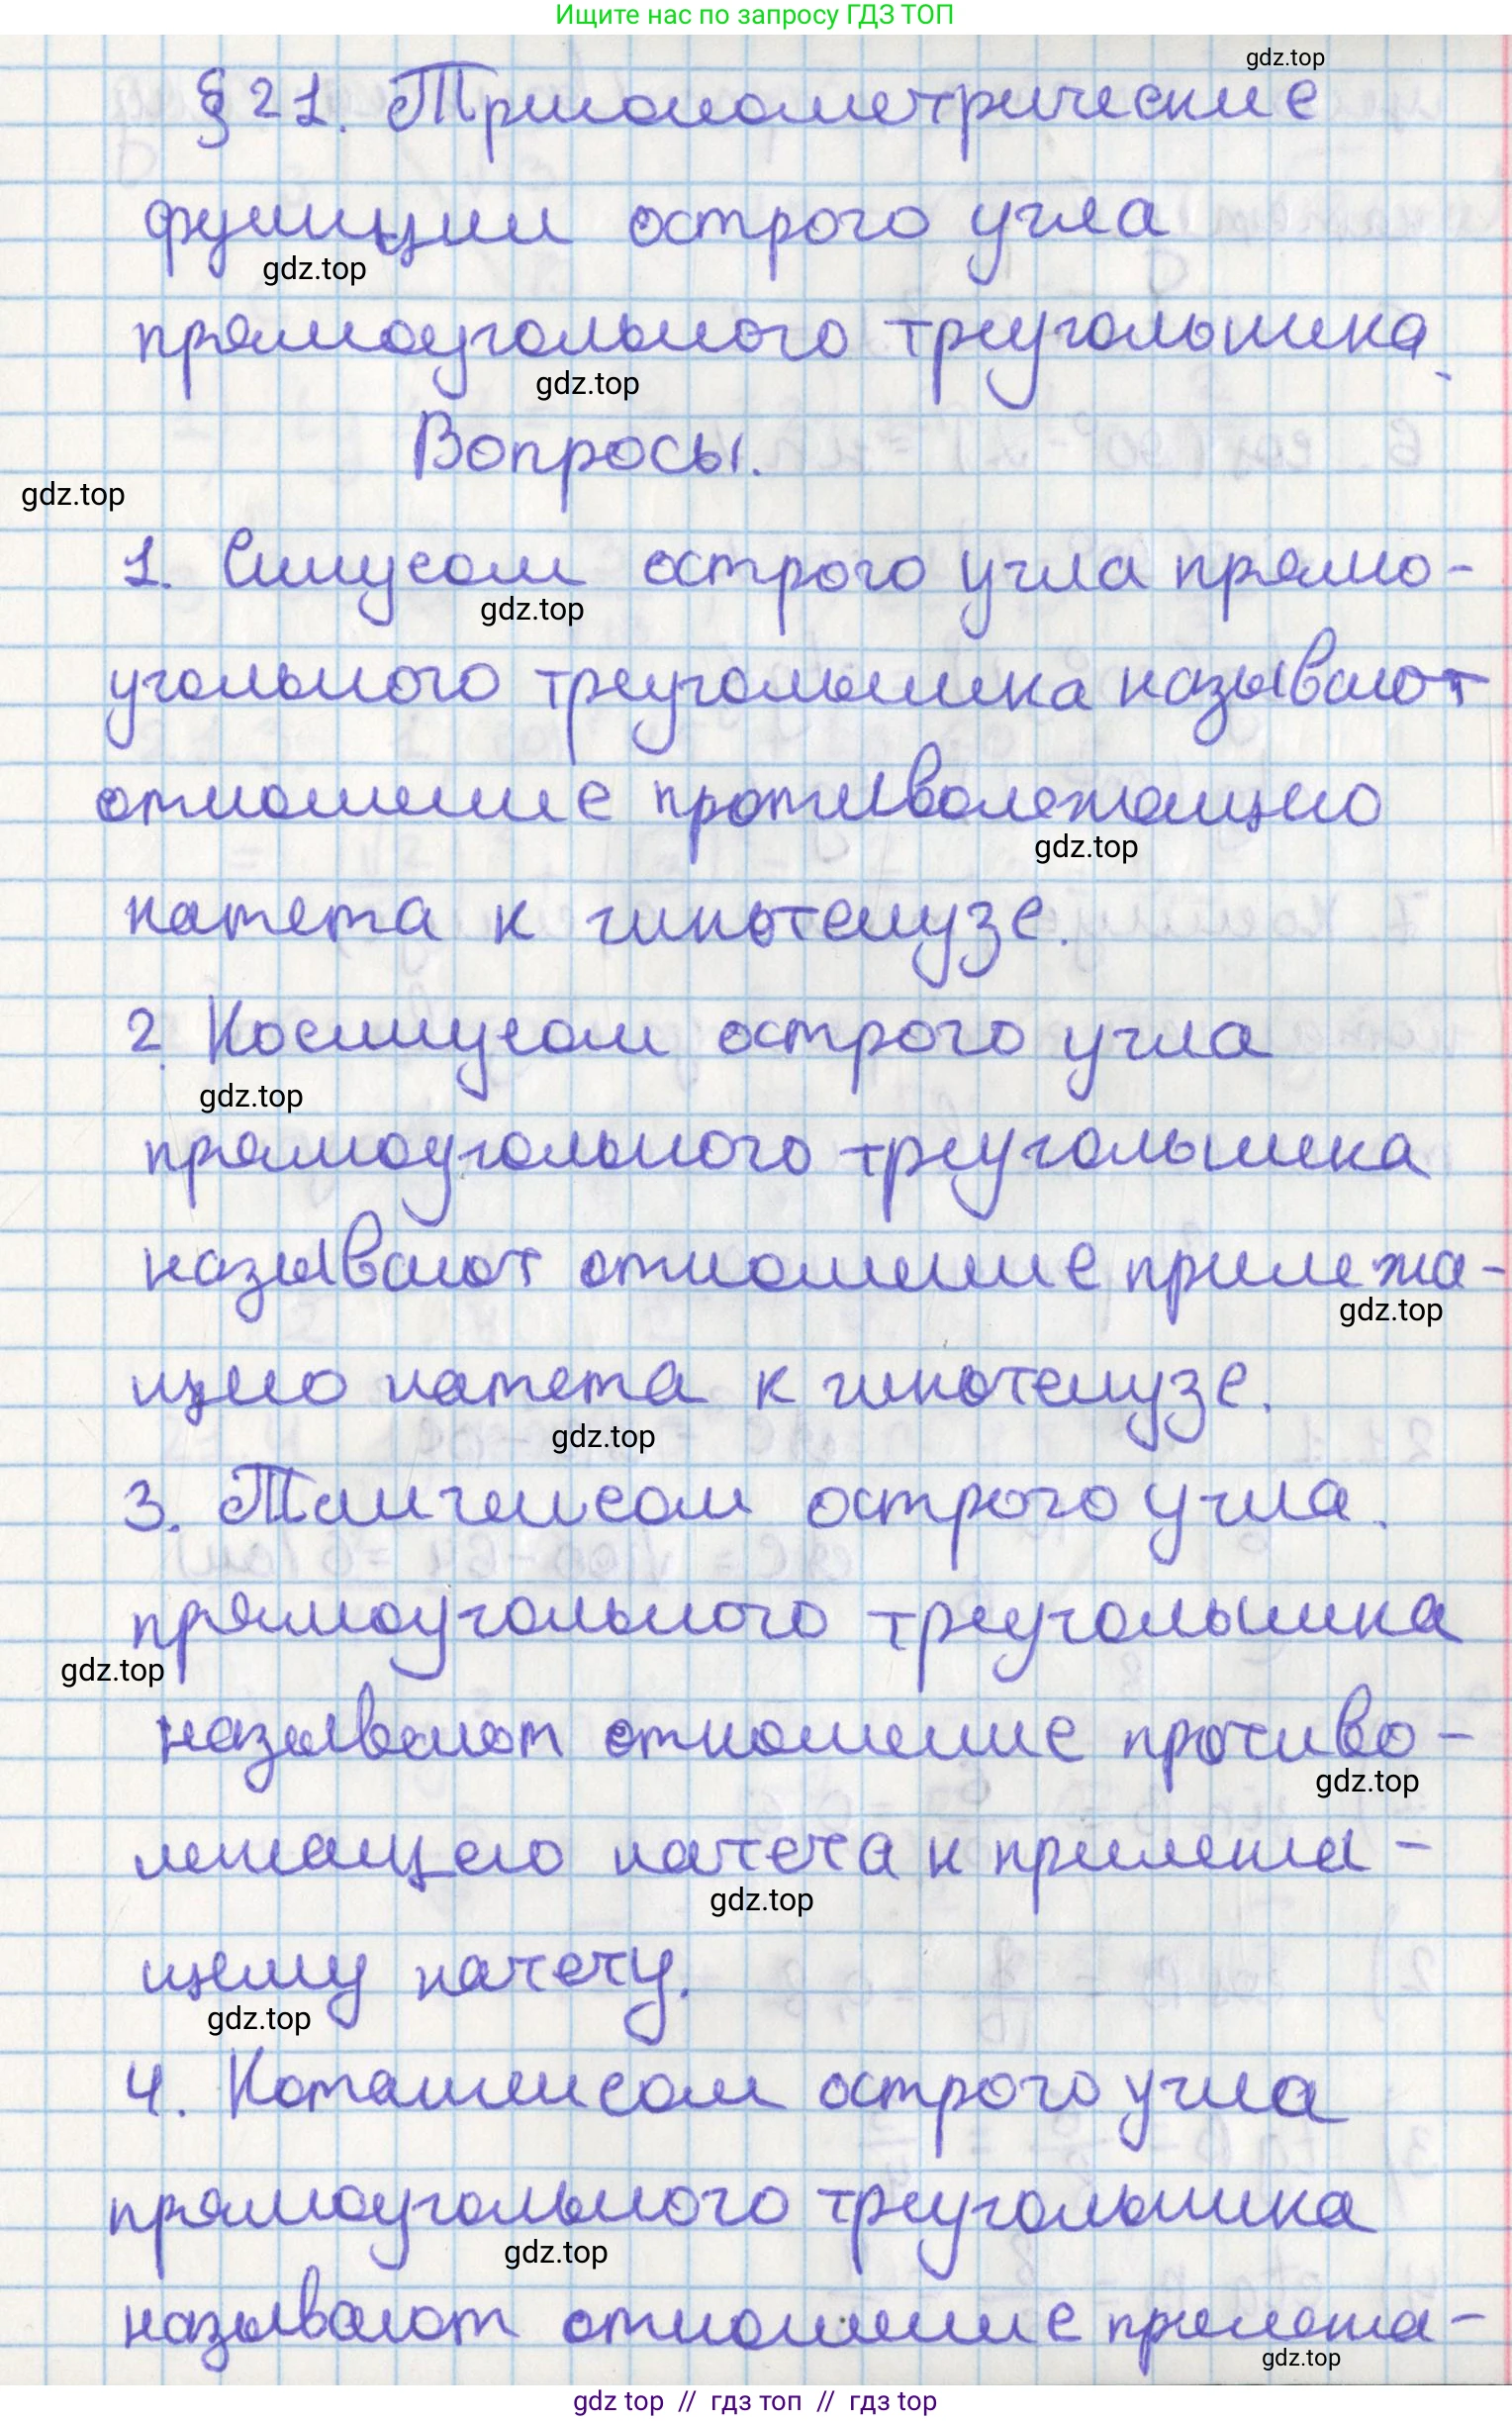 Ищите нас по запросу ГДЗ ТОП
gdz.top
§ 21. Тригонометрические
функции острого угла
gdz.top
прямоугольного треугольника.
gdz.top
Вопросы.
gdz.top
1. Синусом острого угла прямо-
gdz.top
угольного треугольника называют
отношение противолежащего
gdz.top
катета к гипотенузе.
2. Косинусом острого угла
gdz.top
прямоугольного треугольника
называют отношение прилежа-
gdz.top
щего катета к гипотенузе.
gdz.top
3. Тангенсом острого угла.
прямоугольного треугольника
gdz.top
называют отношение противо-
gdz.top
лежащего катета к прилежа-
gdz.top
щему катету.
gdz.top
4. Котангенсом острого угла
прямоугольного треугольника
gdz.top
называют отношение прилежа-
gdz.top
gdz top // гдз топ // гдз top